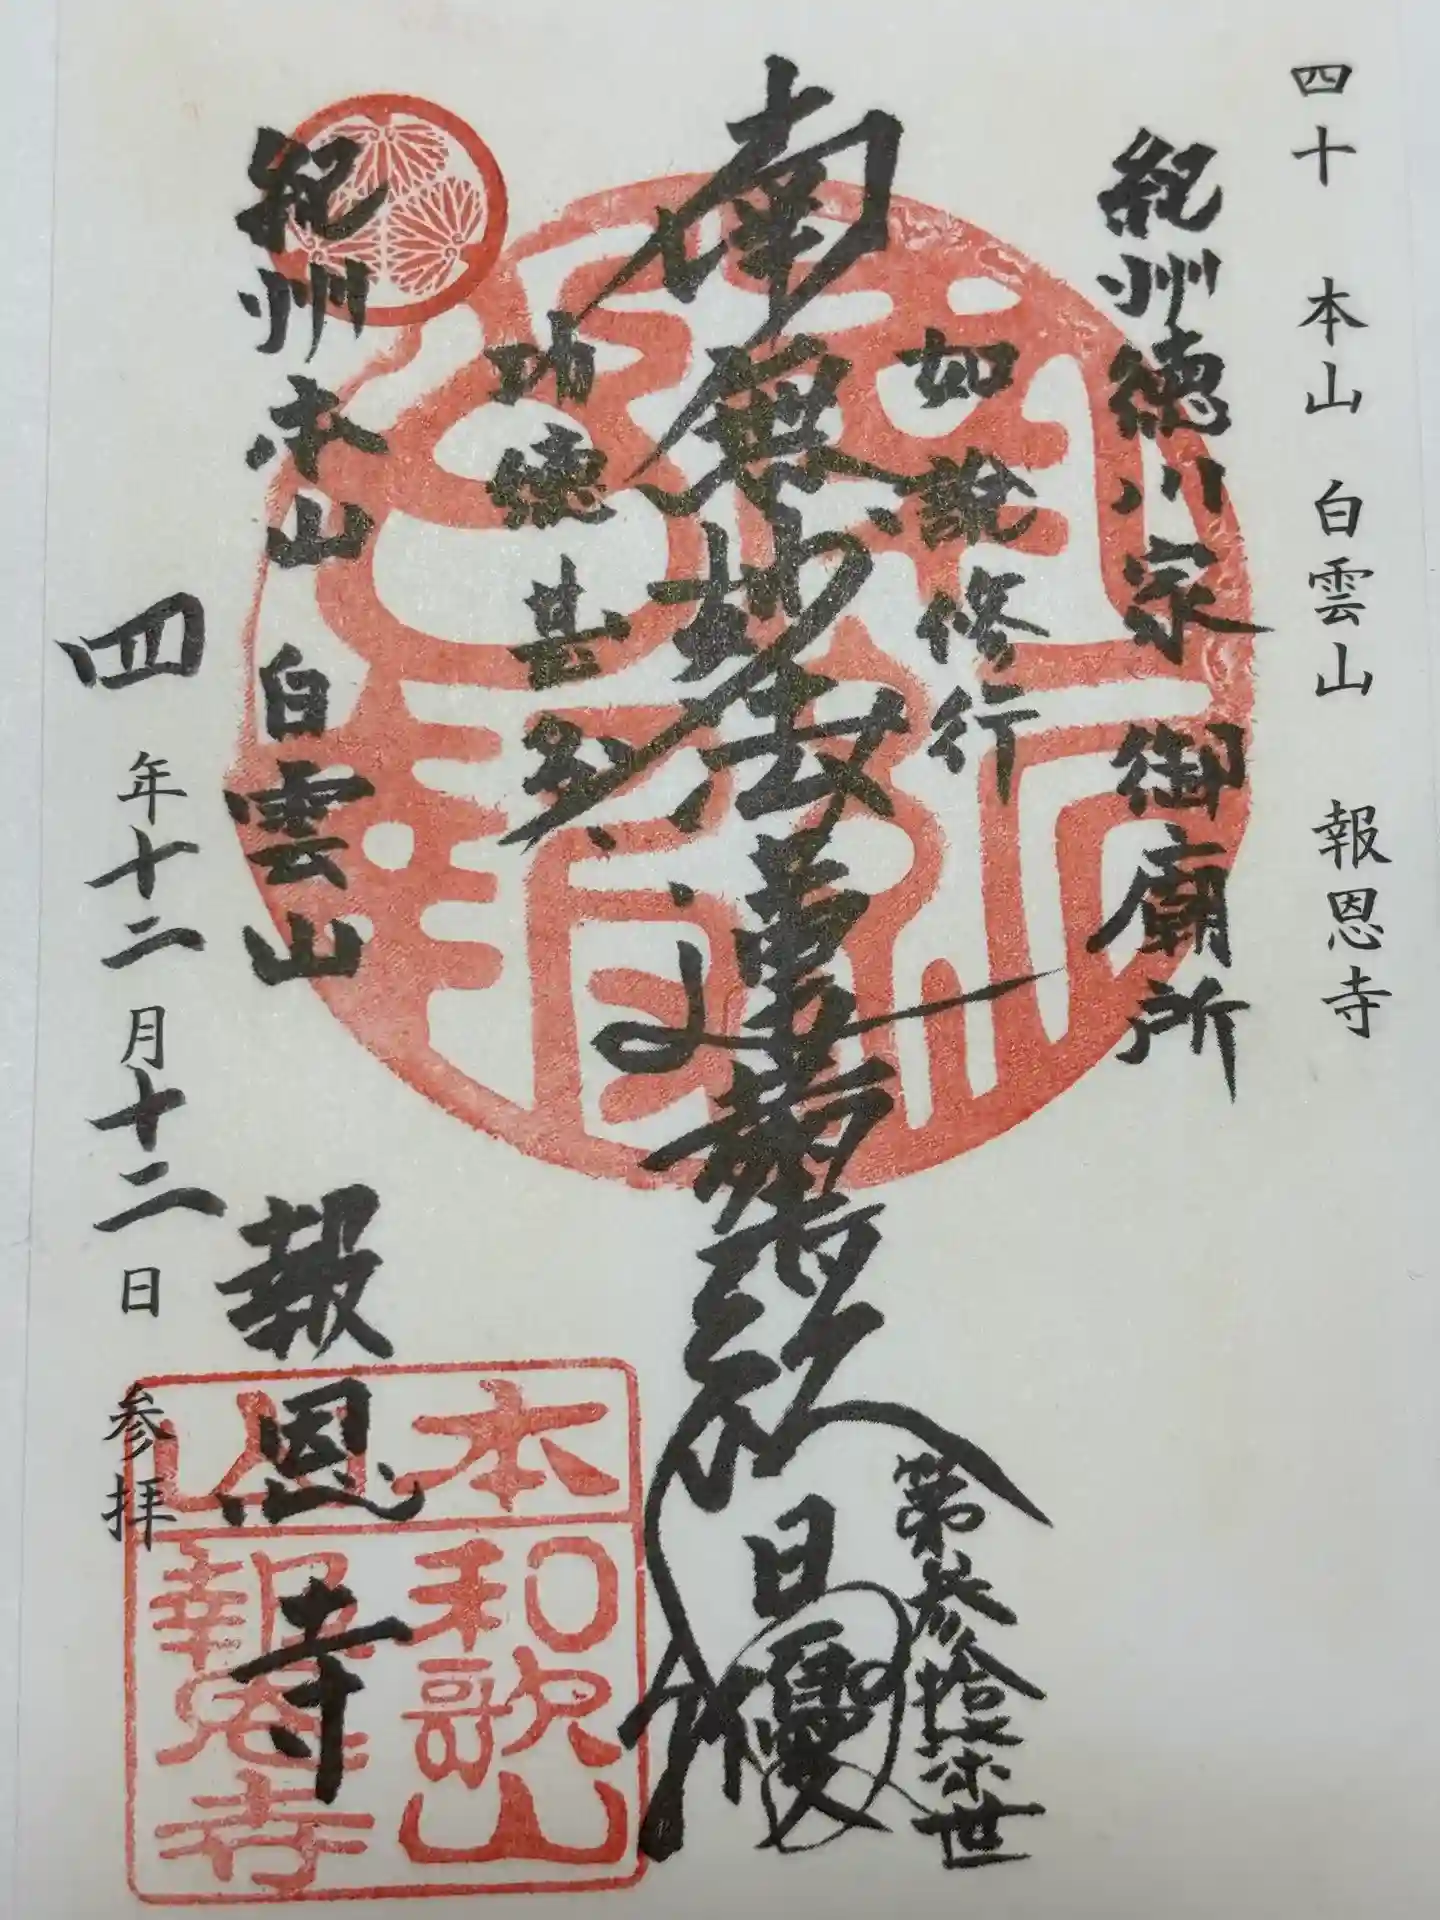 四十 本山 白雲山 報恩寺
紀州徳川家 御廟所
如説修行
南無妙法蓮華経
第参拾柒世
日優
功徳甚多
紀州本山 白雲山 報恩寺
四年十二月十二日 参拝
本山
和歌山
報恩寺